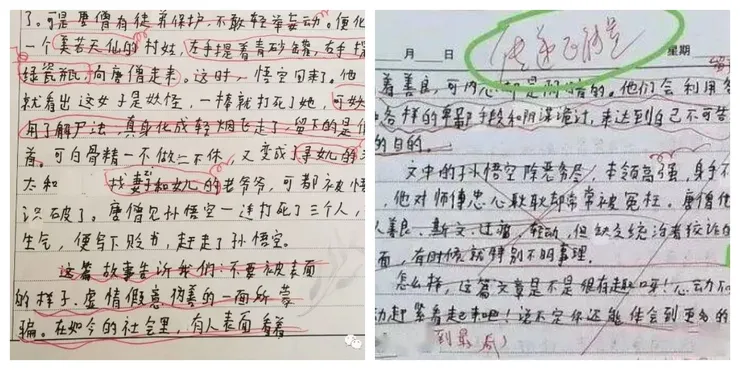 了。可是唐僧有徒弟保护,不敢轻举妄动。便化
一个美若天仙的村姑,左手提着青砂罐,右手提
绿瓷瓶,向唐僧走来。这时,悟空回来了。他
就看出这女子是妖怪,一棒就打死了她,可妖
用了解尸法,真身化成轻烟飞走了,留下的是假
着。可白骨精一不做二不休,又变成了寻女儿的老
太和 找妻子和女儿的老爷爷,可都被悟
识破了。唐僧见孙悟空一连打死了三个人,
生气,便写下贬书,赶走了孙悟空。
这篇故事告诉我们:不要被表面
的样子、虚情假意伪善的一面所蒙
骗。在如今的社会里,有人表面看着
月 日 传递正能量 星期
着善良,可内心却是阴暗的。他们会利用各
种各样的卑鄙手段和阴谋诡计,来达到自己不可告
的目的。
文中的孙悟空除恶务尽,本领高强,身手不
,他对师傅忠心耿耿却常常被冤枉。唐僧他
人善良、斯文、迂腐、轻动,但缺乏统治者狡诈的
面,有时候就特别不明事理。
怎么样,这篇文章是不是很有趣呀!心动不
动赶紧看起来吧!说不定你还能体会到更多的
到最